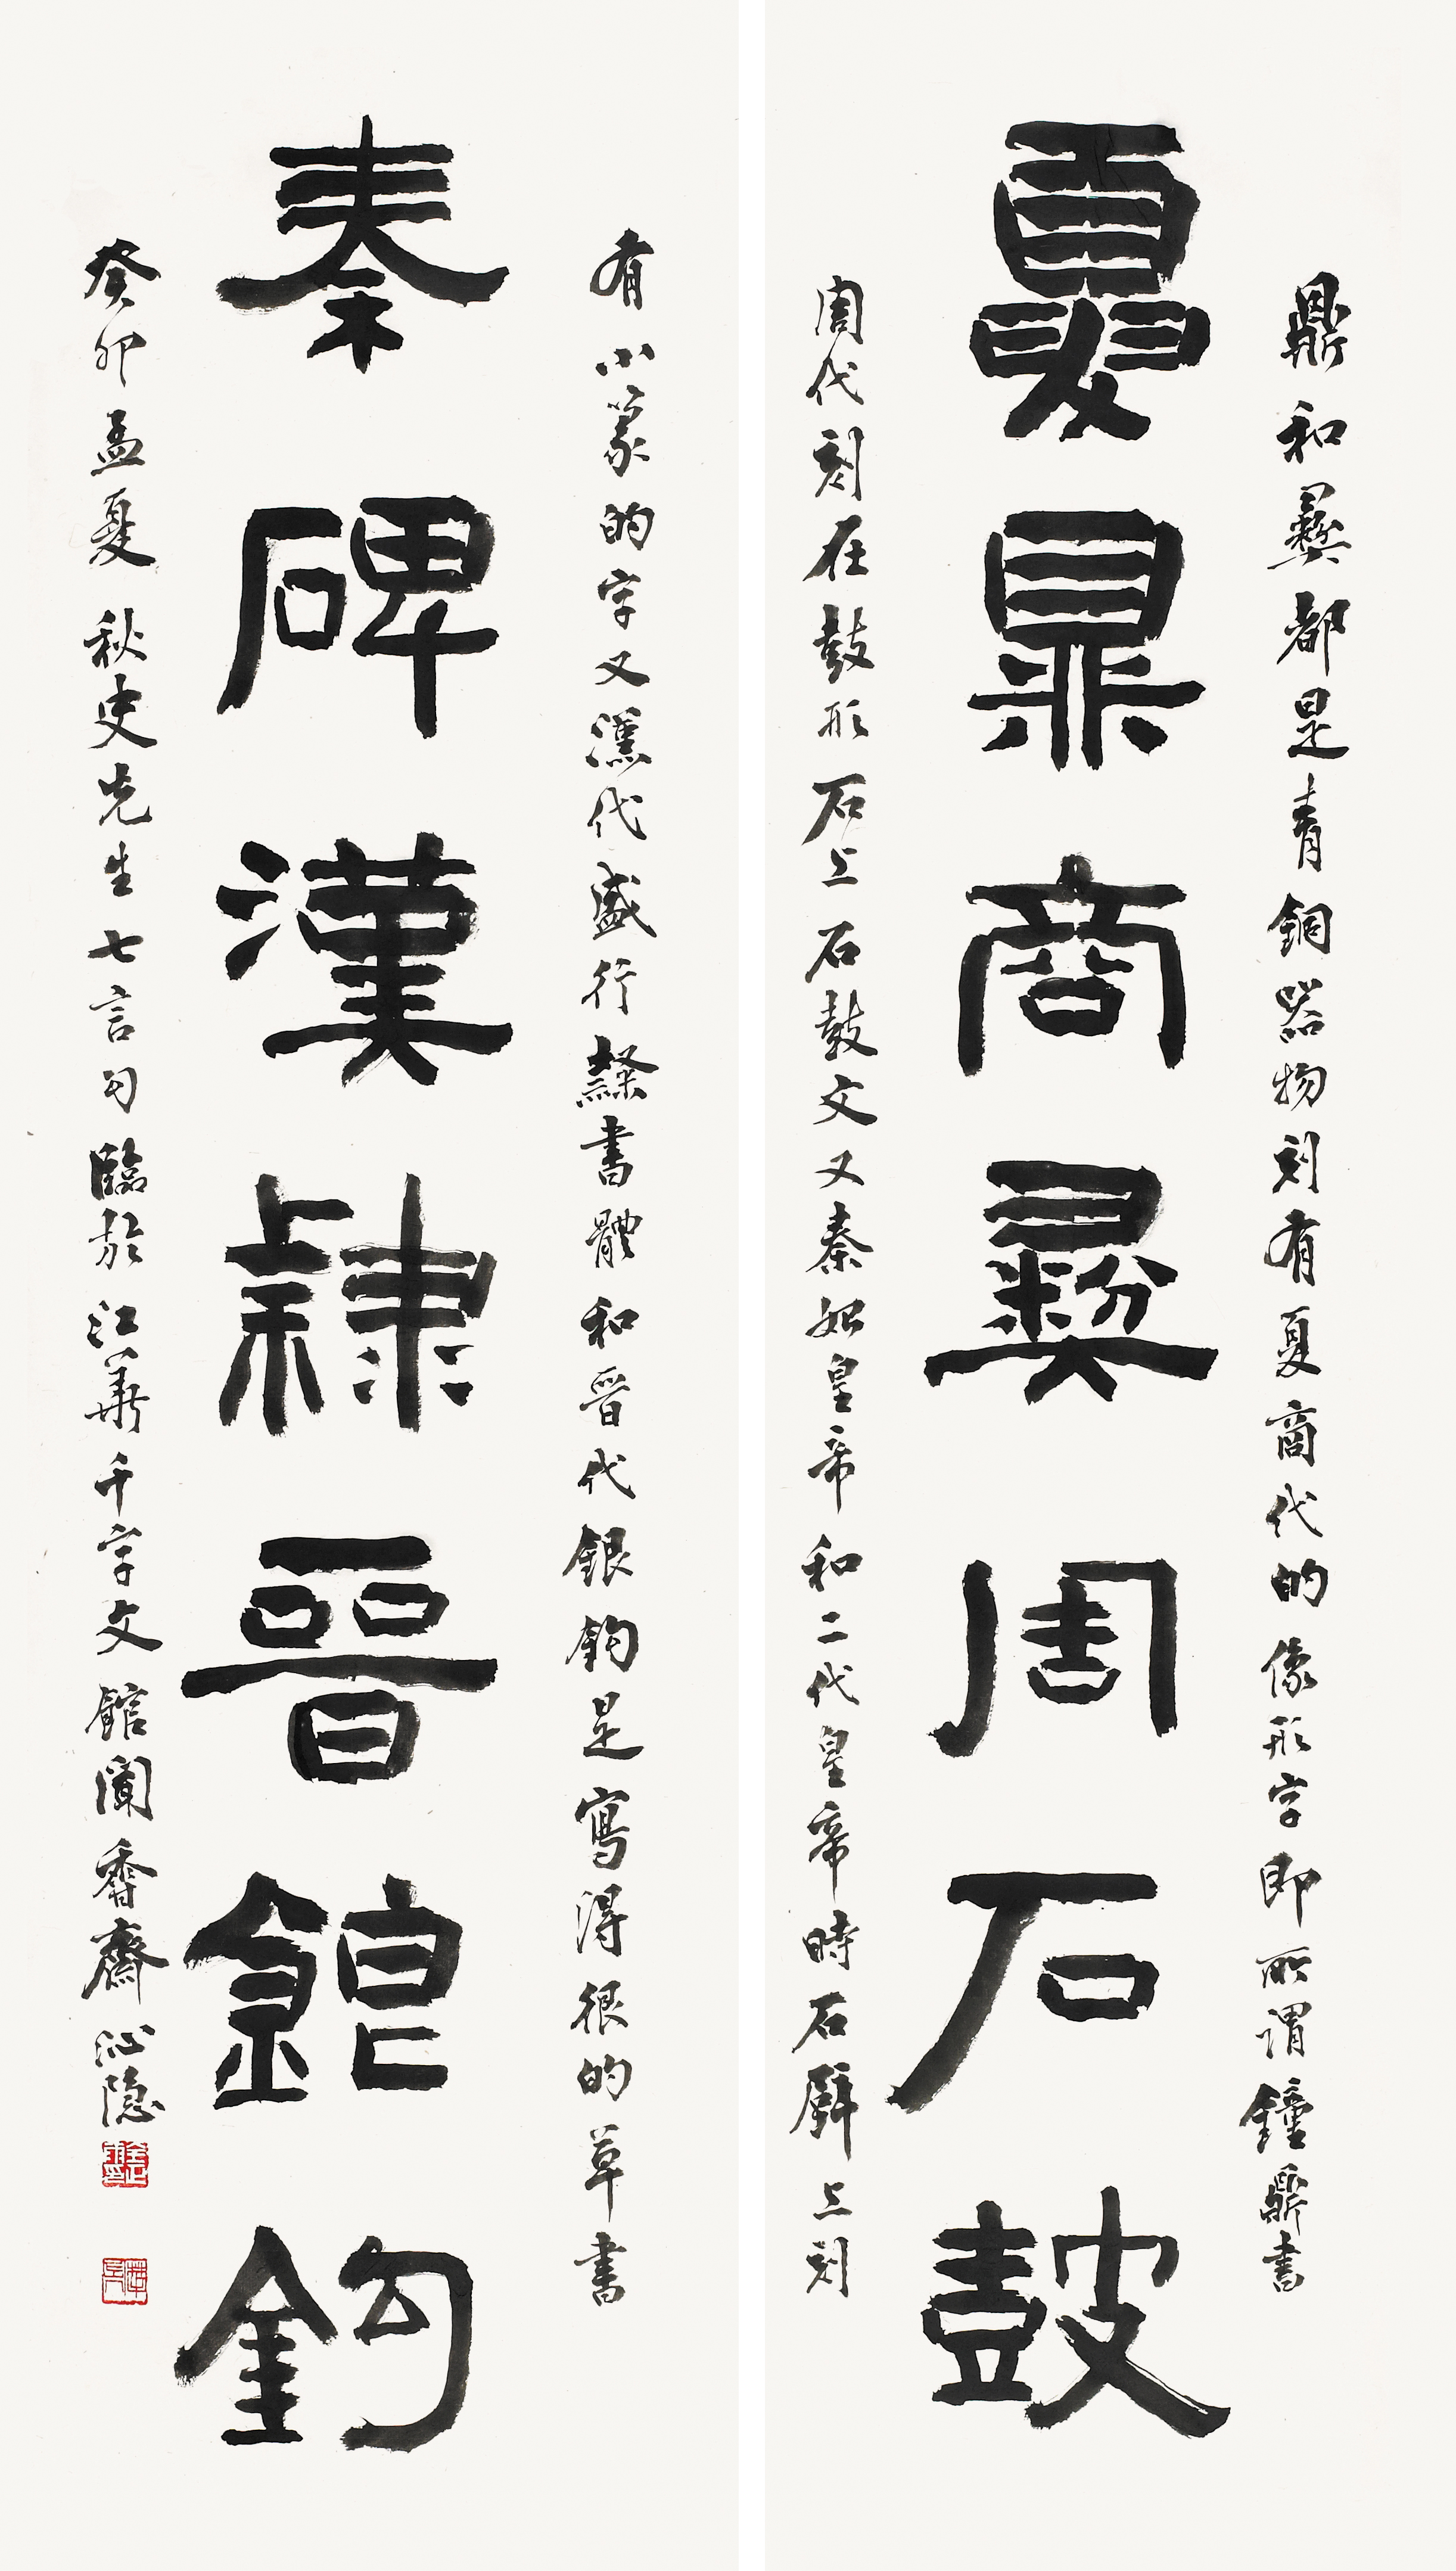 鼎和彝都是青銅器物刻有夏商代的像形字即所謂鐘鼎書
夏鼎商彝周石鼓
周代刻在鼓形石上石鼓文又秦始皇帝和二代皇帝時石壁上刻
有小篆的字又漢代盛行隸書體和晉代銀鈎是寫得很的草書
秦碑漢隸晉銀鈎
癸卯孟夏 秋史先生七言句臨於江華千字文館聞香齋 沁隐